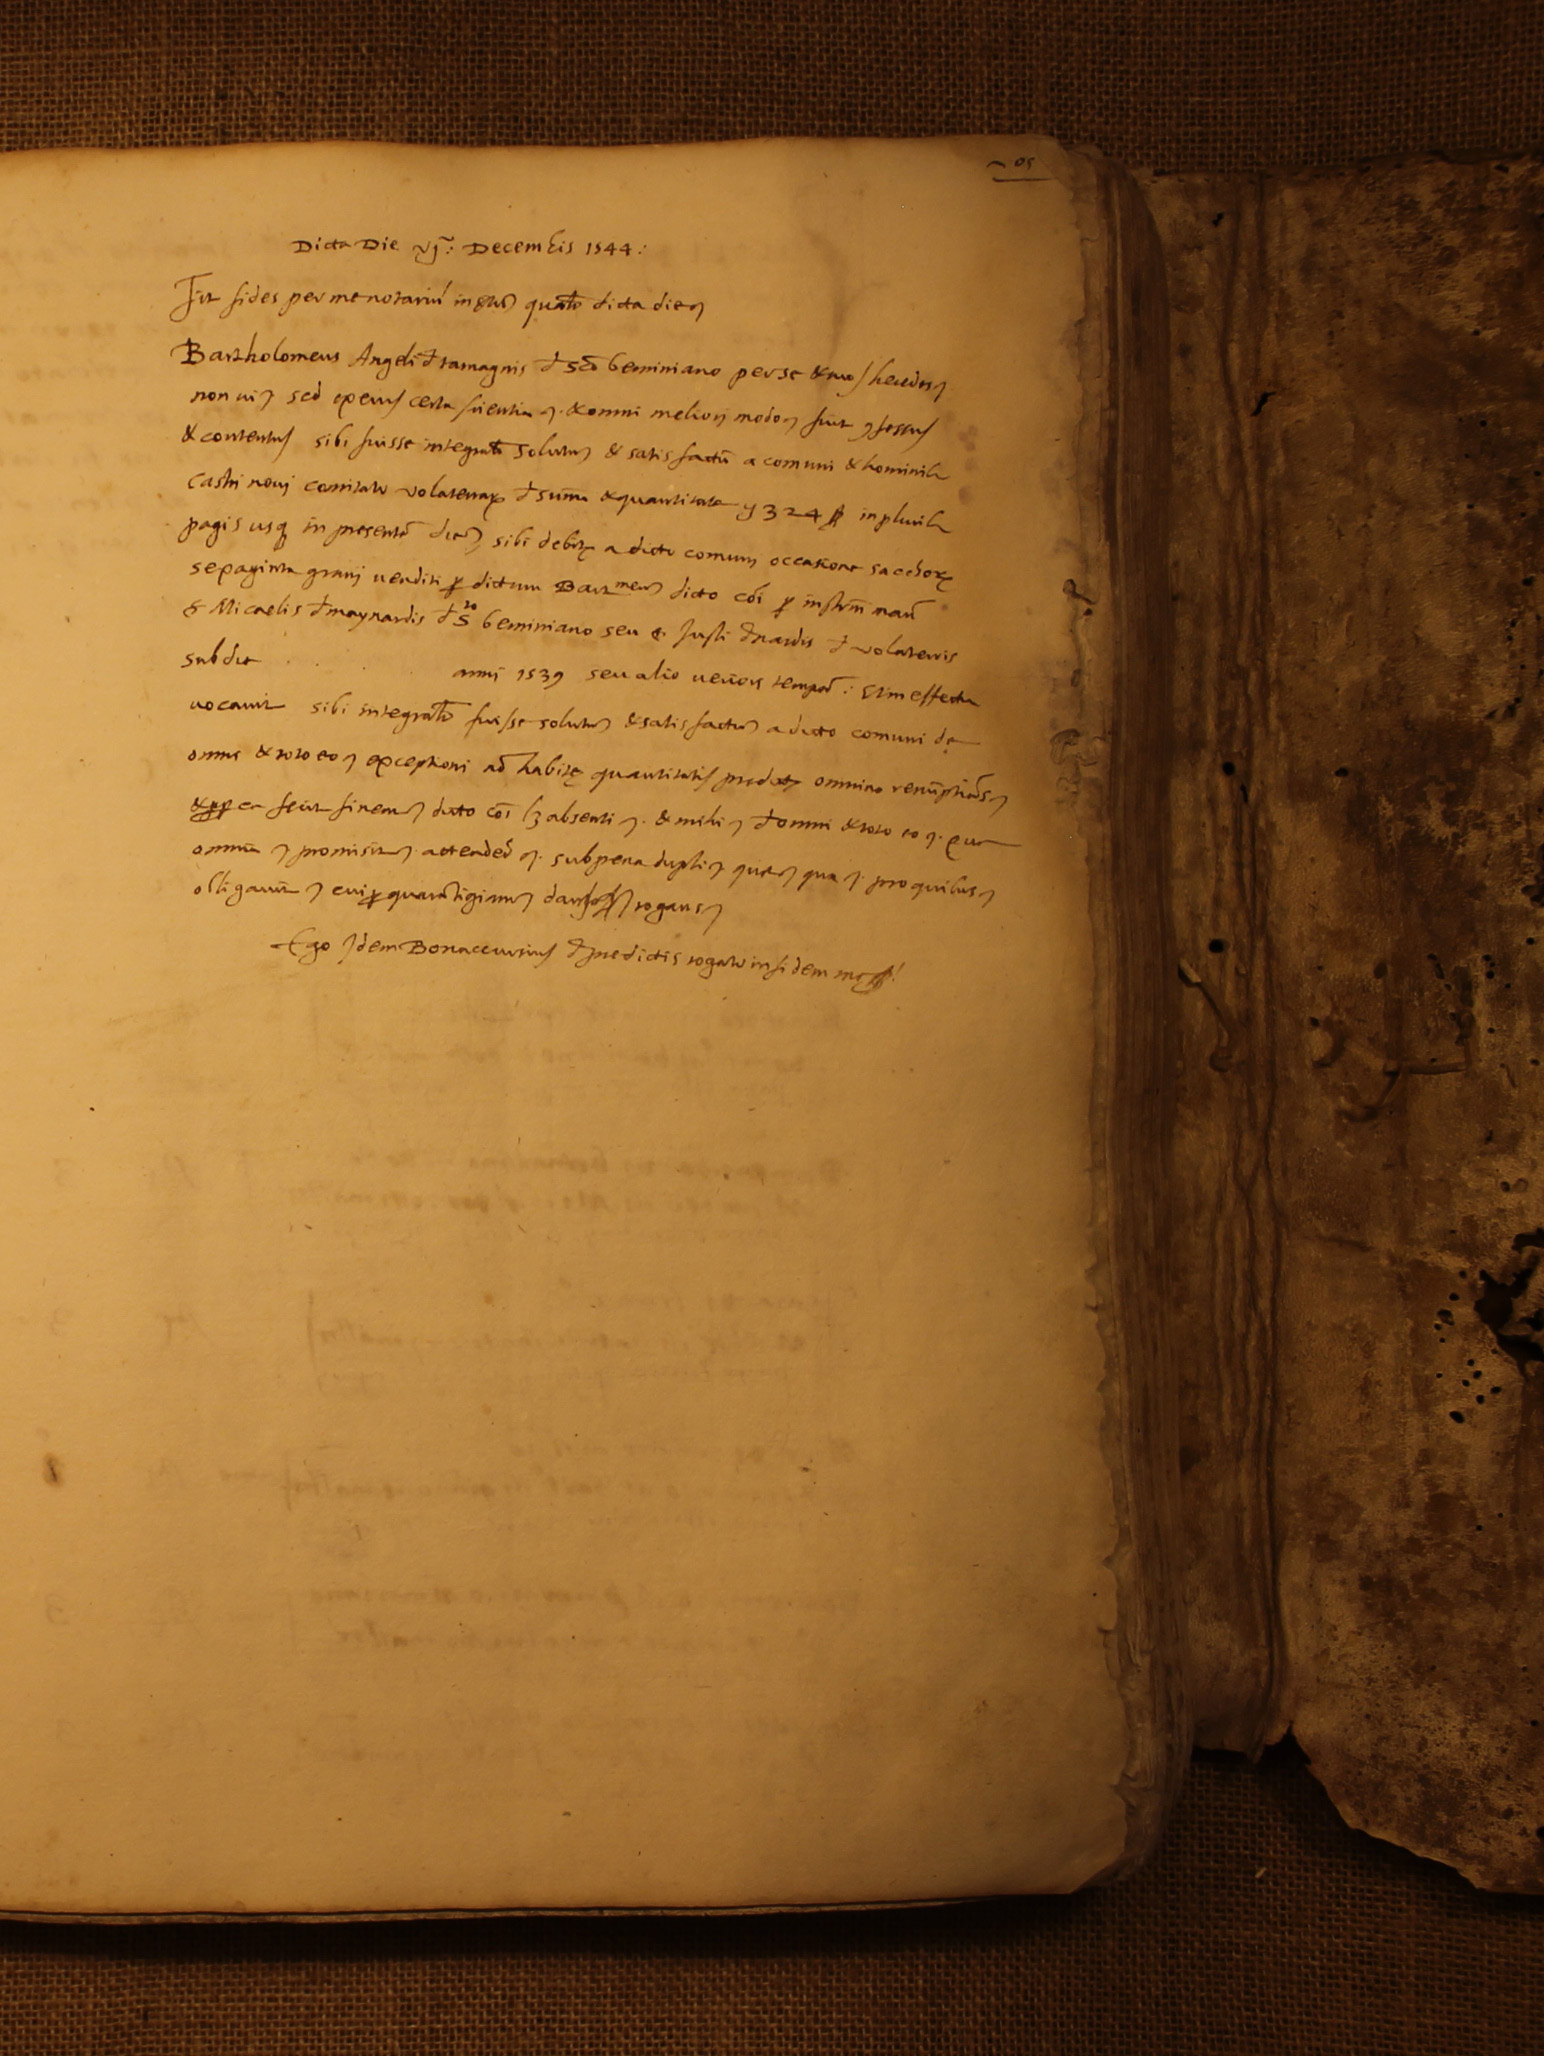 05
Dicta Die vj: Decembris 1544:
Fit fides per me notariũ qualr dicta die
Bartholomeus Angeli d ramagnis d Sco Geminiano per se & suos heredes
non vi sed ex eius certa scientia & omni meliori modo fuit cfessus
& contentus sibi fuisse integratr solutuz & satisfactũ a comuni & hominib
Castri novj comitatu volaterraꝝ d summa & quantitate 324 in plurib
pagis usqꝫ in presentẽ diez sibi debitę a dicto comuni occasione sacchorꝝ
grani venditi p dictum Bartmeuz dicto cõi p instrm
Micaelis d maynardis d Sto Geminiano seu Justi d nardis d volaterris
sub die anni 1539 seu alio veriori tempore : Et in effectu
vocavit sibi integratr fuisse solutuz & satisfactuz a dicto comuni de
omni & toto eo exceptioni nõ habitę quantitatis predictę omnino
fecit finem dicto cõi lz absenti & mihi d omni & toto eo
omnia promisit attendere sub pena dupli que qua pro quibus
obligavit cui p quarãtigiam rogans
Ego Idem Bonaccursius d predictis rogatus in fidem